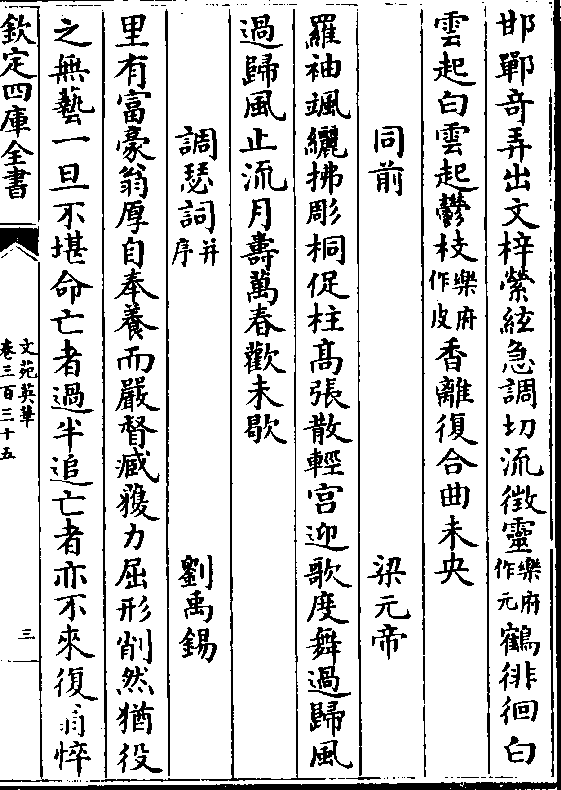 邯鄲奇弄出文梓縈絃急調切流徵靈樂府作元鶴徘徊白
雲起白雲起鬱枝樂府作皮香離復合曲未央
同前 梁元帝
羅袖颯纚拂彫桐促柱髙張散輕宮迎歌度舞過歸風
過歸風止流月壽萬春歡未歇
調瑟詞并序 劉禹錫
里有富豪翁厚自奉養而嚴督臧獲力屈形削然猶役
之無藝一旦不堪命亡者過半追亡者亦不來復翁悴
欽定四庫全書
文苑英華
卷三百三十五
三